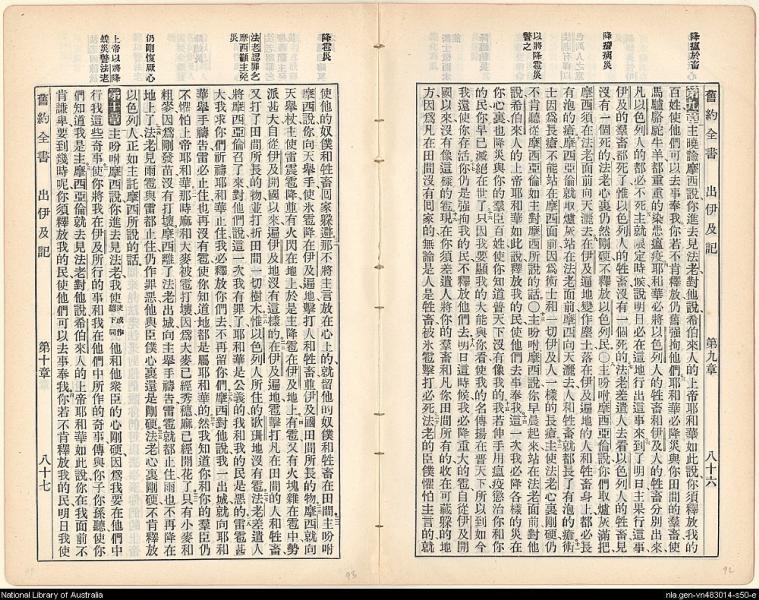 舊約全書 出伊及記 第九章 八十六
降瘡病災
以將降雹災
警之
第九章主曉諭摩西說你進去見法老對他說希伯來人的上帝耶和華如此說你須釋放我的
百姓使他們可以去事奉我你若不肯釋放仍舊強拘他們耶和華必降災與你田間的羣畜使
馬驢駱駝牛羊都重重的染患瘟疫耶和華必將以色列人的牲畜和伊及人的牲畜分別出來
凡以色列人的都必不死主就限定時候說明日必在這地行出這事來到了明日主果行這事
伊及的羣畜都死了惟以色列人的牲畜沒有一個死的法老差遣人去看以色列人的牲畜見
沒有一個死的法老心裏仍然剛硬不釋放以色列民○主吩咐摩西亞倫說你們取爐灰滿把
摩西須在法老面前向天灑去在伊及遍地變作塵土落在伊及遍地的人和牲畜身上都必長
有泡的瘡摩西亞倫就取爐灰站在法老面前摩西向天灑去人和牲畜就都長了有泡的瘡術
士因爲長瘡不能站在摩西面前因爲術士和一切伊及人一樣的長瘡主使法老心裏剛硬仍
不肯聽從摩西亞倫如主對摩西所說的話○主吩咐摩西說你早晨起來站在法老面前對他
說希伯來人的上帝耶和華如此說釋放我的民使他們去事奉我這一次我必降各樣的災在
你心裏也降災與你的羣臣百姓使你知道普天下沒有像我的我若伸手用瘟疫懲治你和你
的民你早已滅絕在世了只因我要顯我的大能與你看使我的名傳揚在普天下所以到如今
我還使你存活你仍是強拘我的民不釋放他們去明日這時候我必降重大的雹自從伊及開
國以來沒有像這樣的雹現在你須差遣人將你的羣畜和凡你田間所有的收在可藏躱的地
方因爲凡在田間沒有囘家的無論是人是牲畜被氷雹擊打必死法老的臣僕懼怕主言的就
降雹災
法老認罪之
摩西顧主免
災
仍剛愎厥心
上帝以將降
蝗災警法老
使他的奴僕和牲畜囘家躱避那不將主言放在心上的就留他的奴僕和牲畜在田間主吩咐
摩西說你向天舉手使氷雹降在伊及遍地擊打人和牲畜並伊及國田間所長的物摩西就向
天舉杖主使雷震雹降並有火閃在地上於是主降雹在伊及地上有雹又有火塊雜在雹中勢
派甚大自從伊及開國以來遍伊及地沒有這樣的在伊及遍地雹擊打凡在田間的人和牲畜
又打了田間所長的物並打折田間一切樹木惟以色列人所住的歌珊地沒有雹法老差遣人
將摩西亞倫召了來對他們說這一次我有罪了耶和華是公義的我和我的民是惡的雷雹甚
大我求你們祈禱耶和華止住我必釋放你們去不再留你們摩西對他說我一出城就向耶和
華舉手禱告雷必止住也再沒有雹使你知道地都是屬耶和華的然我知道你和你的羣臣仍
不懼怕上帝耶和華那時麻和大麥被雹打壞因爲大麥已經秀穗麻已經開花了只有小麥和
粗麥因爲剛發苗沒有打壞摩西離了法老出城向主舉手禱告雷雹就都止住雨也不再降在
地上了法老見雨雹與雷都止住仍作罪惡他與臣僕心裏還是剛硬法老心裏剛硬不肯釋放
以色列人正如主託摩西所說的話
第十章主吩咐摩西說你進去見法老我使他和他衆臣的心剛硬因爲我要在他們中
行我這些奇事使你將我在伊及所行的事和我在他們中所作的奇事傳與你子你孫聽使你
們知道我是主摩西亞倫就去見法老對他說希伯來人的上帝耶和華如此說你在我面前不
肯謙卑要到幾時呢你須釋放我的民使他們可以去事奉我你若不肯釋放我的民明日我使
舊約全書 出伊及記 第十章 八十七
93
92
National Library of Australia
nla.gen-vn483014-s50-e